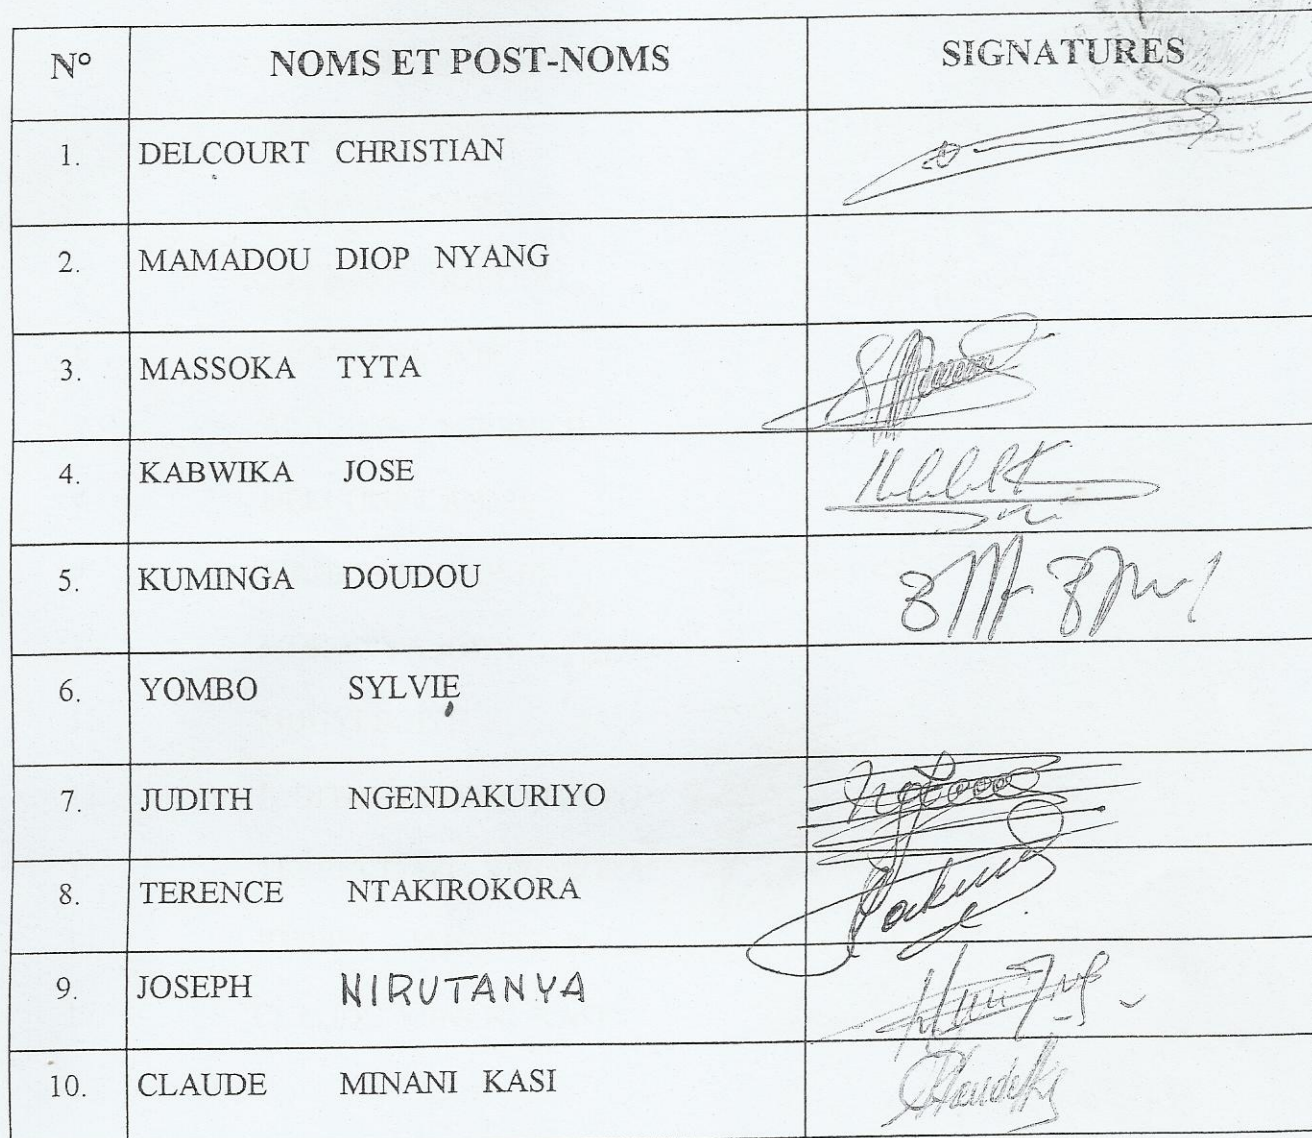 N° NOMS ET POST-NOMS SIGNATURES
1. DELCOURT CHRISTIAN
2. MAMADOU DIOP NYANG
3. MASSOKA TYTA
4. KABWIKA JOSE
5. KUMINGA DOUDOU
6. YOMBO SYLVIE
7. JUDITH NGENDAKURIYO
8. TERENCE NTAKIROKORA
9. JOSEPH NIRUTANYA
10. CLAUDE MINANI KASI